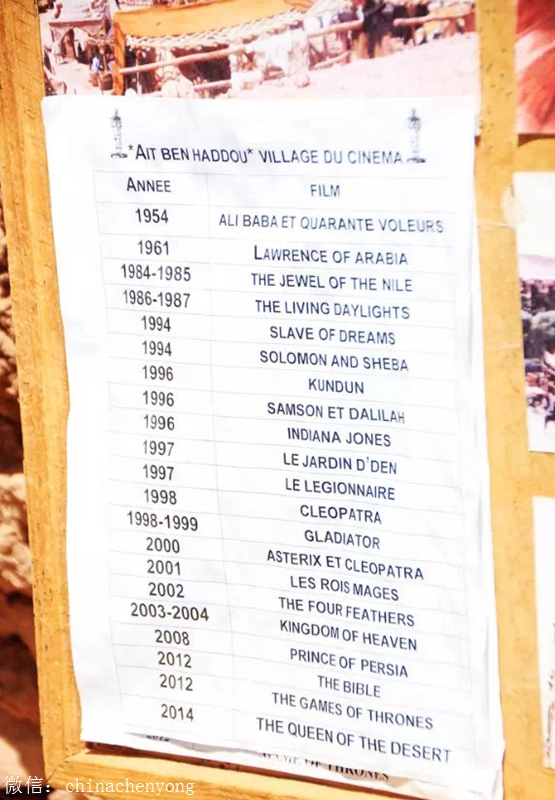 *AIT BEN HADDOU* VILLAGE DU CINEMA
ANNEE FILM
1954 ALI BABA ET QUARANTE VOLEURS
1961 LAWRENCE OF ARABIA
1984-1985 THE JEWEL OF THE NILE
1986-1987 THE LIVING DAYLIGHTS
1994 SLAVE OF DREAMS
1994 SOLOMON AND SHEBA
1996 KUNDUN
1996 SAMSON ET DALILAH
1996 INDIANA JONES
1997 LE JARDIN D'DEN
1997 LE LEGIONNAIRE
1998 CLEOPATRA
1998-1999 GLADIATOR
2000 ASTERIX ET CLEOPATRA
2001 LES ROIS MAGES
2002 THE FOUR FEATHERS
2003-2004 KINGDOM OF HEAVEN
2008 PRINCE OF PERSIA
2012 THE BIBLE
2012 THE GAMES OF THRONES
2014 THE QUEEN OF THE DESERT
OF THRONES
微信：chinachenyong